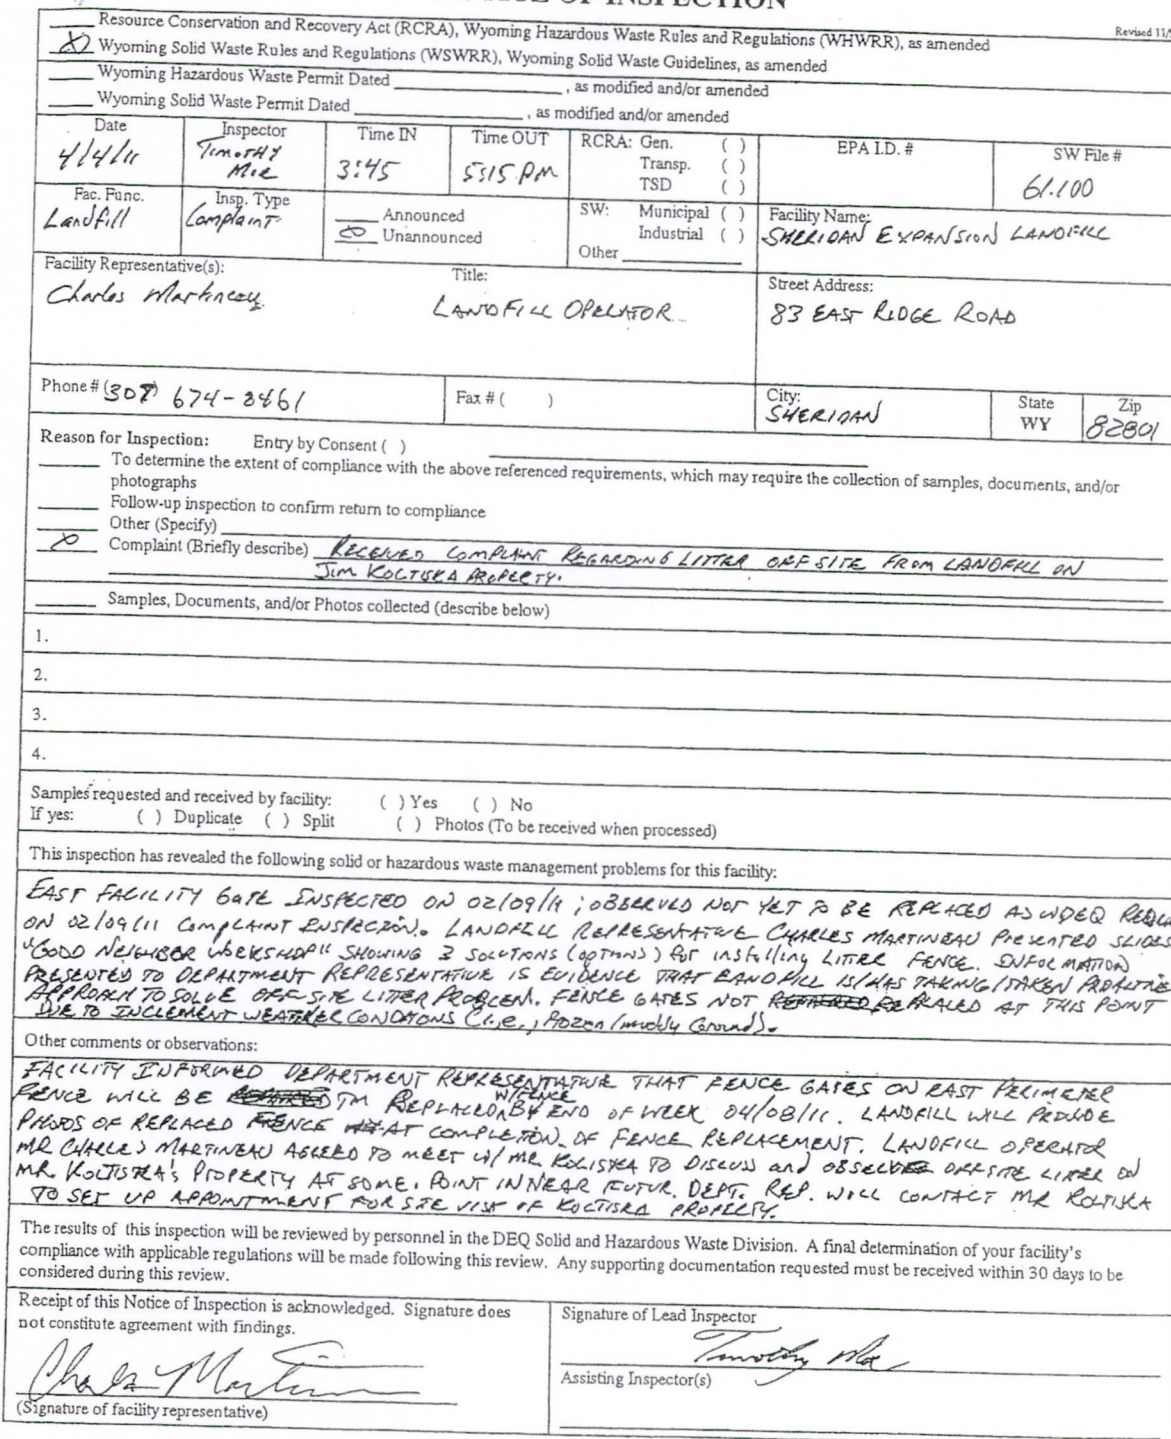 OF INSPECTION
Revised 11/
Resource Conservation and Recovery Act (RCRA), Wyoming Hazardous Waste Rules and Regulations (WHWRR), as amended
X Wyoming Solid Waste Rules and Regulations (WSWRR), Wyoming Solid Waste Guidelines, as amended
Wyoming Hazardous Waste Permit Dated ________, as modified and/or amended
Wyoming Solid Waste Permit Dated ________, as modified and/or amended
Date Inspector Time IN Time OUT RCRA: Gen. ( ) EPA I.D. # SW File #
4/4/11 TIMOTHY 3:45 5:15 PM Transp. ( ) 61.100
TSD ( )
Fac. Func. Insp. Type SW: Municipal ( ) Facility Name:
Landfill Complaint Announced Industrial ( ) SHERIDAN EXPANSION LANDFILL
X Unannounced Other
Facility Representative(s): Title: Street Address:
Charles Martineau LANDFILL OPERATOR 83 EAST RIDGE ROAD
Phone # (307) 674-8461 Fax # ( ) City: State Zip
SHERIDAN WY 82801
Reason for Inspection: Entry by Consent ( )
To determine the extent of compliance with the above referenced requirements, which may require the collection of samples, documents, and/or
photographs
Follow-up inspection to confirm return to compliance
Other (Specify)
X Complaint (Briefly describe) RECEIVED COMPLAINT REGARDING LITTER OFF SITE FROM LANDFILL ON
JIM KOLTISKA PROPERTY.
Samples, Documents, and/or Photos collected (describe below)
1.
2.
3.
4.
Samples requested and received by facility: ( ) Yes ( ) No
If yes: ( ) Duplicate ( ) Split ( ) Photos (To be received when processed)
This inspection has revealed the following solid or hazardous waste management problems for this facility:
EAST FACILITY GATE INSPECTED ON 02/09/11; OBSERVED NOT YET TO BE REPLACED AS WDEQ
ON 02/09/11 COMPLAINT INSPECTION. LANDFILL REPRESENTATIVE CHARLES MARTINEAU PRESENTED SLIDES
"GOOD NEIGHBOR WORKSHOP" SHOWING 3 SOLUTIONS (OPTIONS) FOR INSTALLING LITTER FENCE. INFORMATION
PRESENTED TO DEPARTMENT REPRESENTATIVE IS EVIDENCE THAT LANDFILL IS/HAS TAKING/TAKEN
APPROACH TO SOLVE OFF-SITE LITTER PROBLEM. FENCE GATES NOT REPLACED AT THIS POINT
DUE TO INCLEMENT WEATHER CONDITIONS (i.e., frozen/muddy Ground).
Other comments or observations:
FACILITY INFORMED DEPARTMENT REPRESENTATIVE THAT FENCE GATES ON EAST PERIMETER
FENCE WILL BE REPLACED W/FENCE BY END OF WEEK 04/08/11. LANDFILL WILL PROVIDE
PHOTOS OF REPLACED FENCE AT COMPLETION OF FENCE REPLACEMENT. LANDFILL OPERATOR
MR CHARLES MARTINEAU AGREED TO MEET W/ MR KOLTISKA TO DISCUSS and OBSERVE OFFSITE LITTER ON
MR. KOLTISKA'S PROPERTY AT SOME POINT IN NEAR FUTUR. DEPT. REP. WILL CONTACT MR KOLTISKA
TO SET UP APPOINTMENT FOR SITE VISIT OF KOLTISKA PROPERTY.
The results of this inspection will be reviewed by personnel in the DEQ Solid and Hazardous Waste Division. A final determination of your facility's
compliance with applicable regulations will be made following this review. Any supporting documentation requested must be received within 30 days to be
considered during this review.
Receipt of this Notice of Inspection is acknowledged. Signature does
not constitute agreement with findings.
Signature of Lead Inspector
Assisting Inspector(s)
(Signature of facility representative)